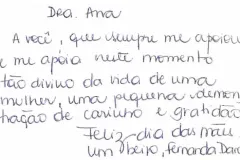 Dra. Ana
A você, que sempre me apoiou
e me apóia neste momento
tão divino da vida de uma
mulher, uma pequena demons
tração de carinho e gratidão
Feliz dia das mães
um beijo, Fernanda